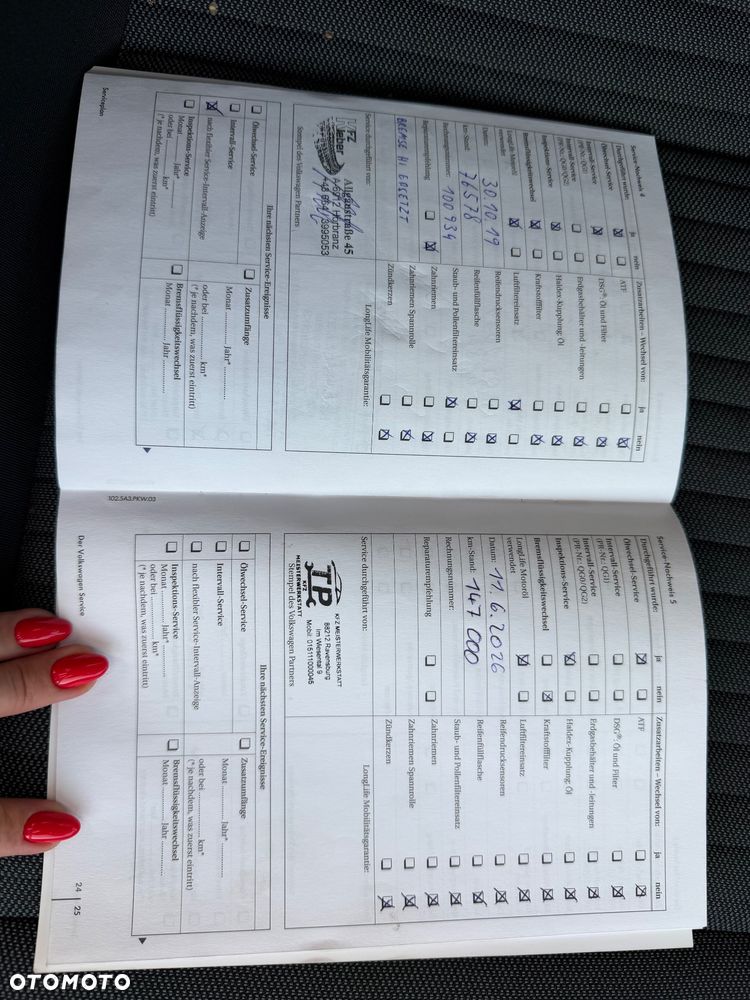 Service-Nachweis 4
Durchgeführt wurde:
ja
nein
Ölwechsel-Service
Intervall-Service
(PR-Nr. QG1)
Intervall-Service
(PR-Nr. QG0/QG2)
Inspektions-Service
Bremsflüssigkeitswechsel
LongLife Motoröl
verwendet
Datum: 30.10.19
km-Stand: 76578
Rechnungsnummer: 100934
Reparaturempfehlung
BREMSE HI ERSETZT
Service durchgeführt von:
Allgäustraße 45
A-6912 Hörbranz
Stempel des Volkswagen Partners
Zusatzarbeiten – Wechsel von:
ja
nein
ATF
DSG®: Öl und Filter
Erdgasbehälter und -leitungen
Haldex-Kupplung: Öl
Kraftstofffilter
Luftfiltereinsatz
Reifendrucksensoren
Reifenfüllflasche
Staub- und Pollenfiltereinsatz
Zahnriemen
Zahnriemen Spannrolle
Zündkerzen
LongLife Mobilitätsgarantie:
Ihre nächsten Service-Ereignisse
Ölwechsel-Service
Intervall-Service
nach flexibler Service-Intervall-Anzeige
Inspektions-Service
Monat ............ Jahr*............
oder bei ............ km*
(* je nachdem, was zuerst eintritt)
Zusatzumfänge
Monat ............ Jahr*............
oder bei ............ km*
(* je nachdem, was zuerst eintritt)
Bremsflüssigkeitswechsel
Monat ............ Jahr ............
Serviceplan
102.5A3.PKW.03
Service-Nachweis 5
Durchgeführt wurde:
ja
nein
Ölwechsel-Service
Intervall-Service
(PR-Nr. QG1)
Intervall-Service
(PR-Nr. QG0/QG2)
Inspektions-Service
Bremsflüssigkeitswechsel
LongLife Motoröl
verwendet
Datum: 11.6.2026
km-Stand: 147 000
Rechnungsnummer:
Reparaturempfehlung
Service durchgeführt von:
KFZ MEISTERWERKSTATT
88212 Ravensburg
im Wiesental 9
Mobil: 015111000045
TP
KFZ
MEISTERWERKSTATT
Stempel des Volkswagen Partners
Zusatzarbeiten – Wechsel von:
ja
nein
ATF
DSG®: Öl und Filter
Erdgasbehälter und -leitungen
Haldex-Kupplung: Öl
Kraftstofffilter
Luftfiltereinsatz
Reifendrucksensoren
Reifenfüllflasche
Staub- und Pollenfiltereinsatz
Zahnriemen
Zahnriemen Spannrolle
Zündkerzen
LongLife Mobilitätsgarantie:
Ihre nächsten Service-Ereignisse
Ölwechsel-Service
Intervall-Service
nach flexibler Service-Intervall-Anzeige
Inspektions-Service
Monat ............ Jahr*............
oder bei ............ km*
(* je nachdem, was zuerst eintritt)
Zusatzumfänge
Monat ............ Jahr*............
oder bei ............ km*
(* je nachdem, was zuerst eintritt)
Bremsflüssigkeitswechsel
Monat ............ Jahr ............
Der Volkswagen Service
24 | 25
OTOMOTO